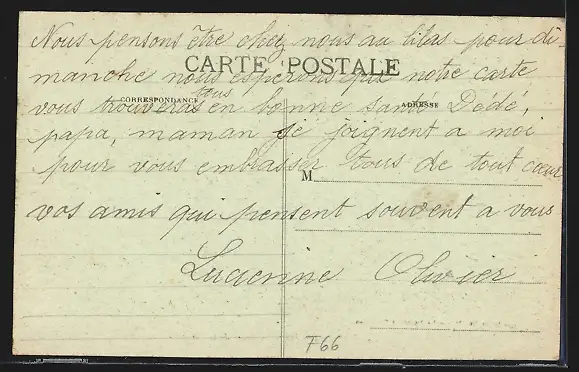 Nous pensons être chez nous au lilas pour di-
CARTE POSTALE
manche nous esperons que notre carte
CORRESPONDANCE
ADRESSE
vous trouveras tous en bonne santé Dédé,
papa, maman se joignent a moi
pour vous embrasser tous de tout cœur
M
vos amis qui pensent souvent a vous
Lucienne Olivier
F66